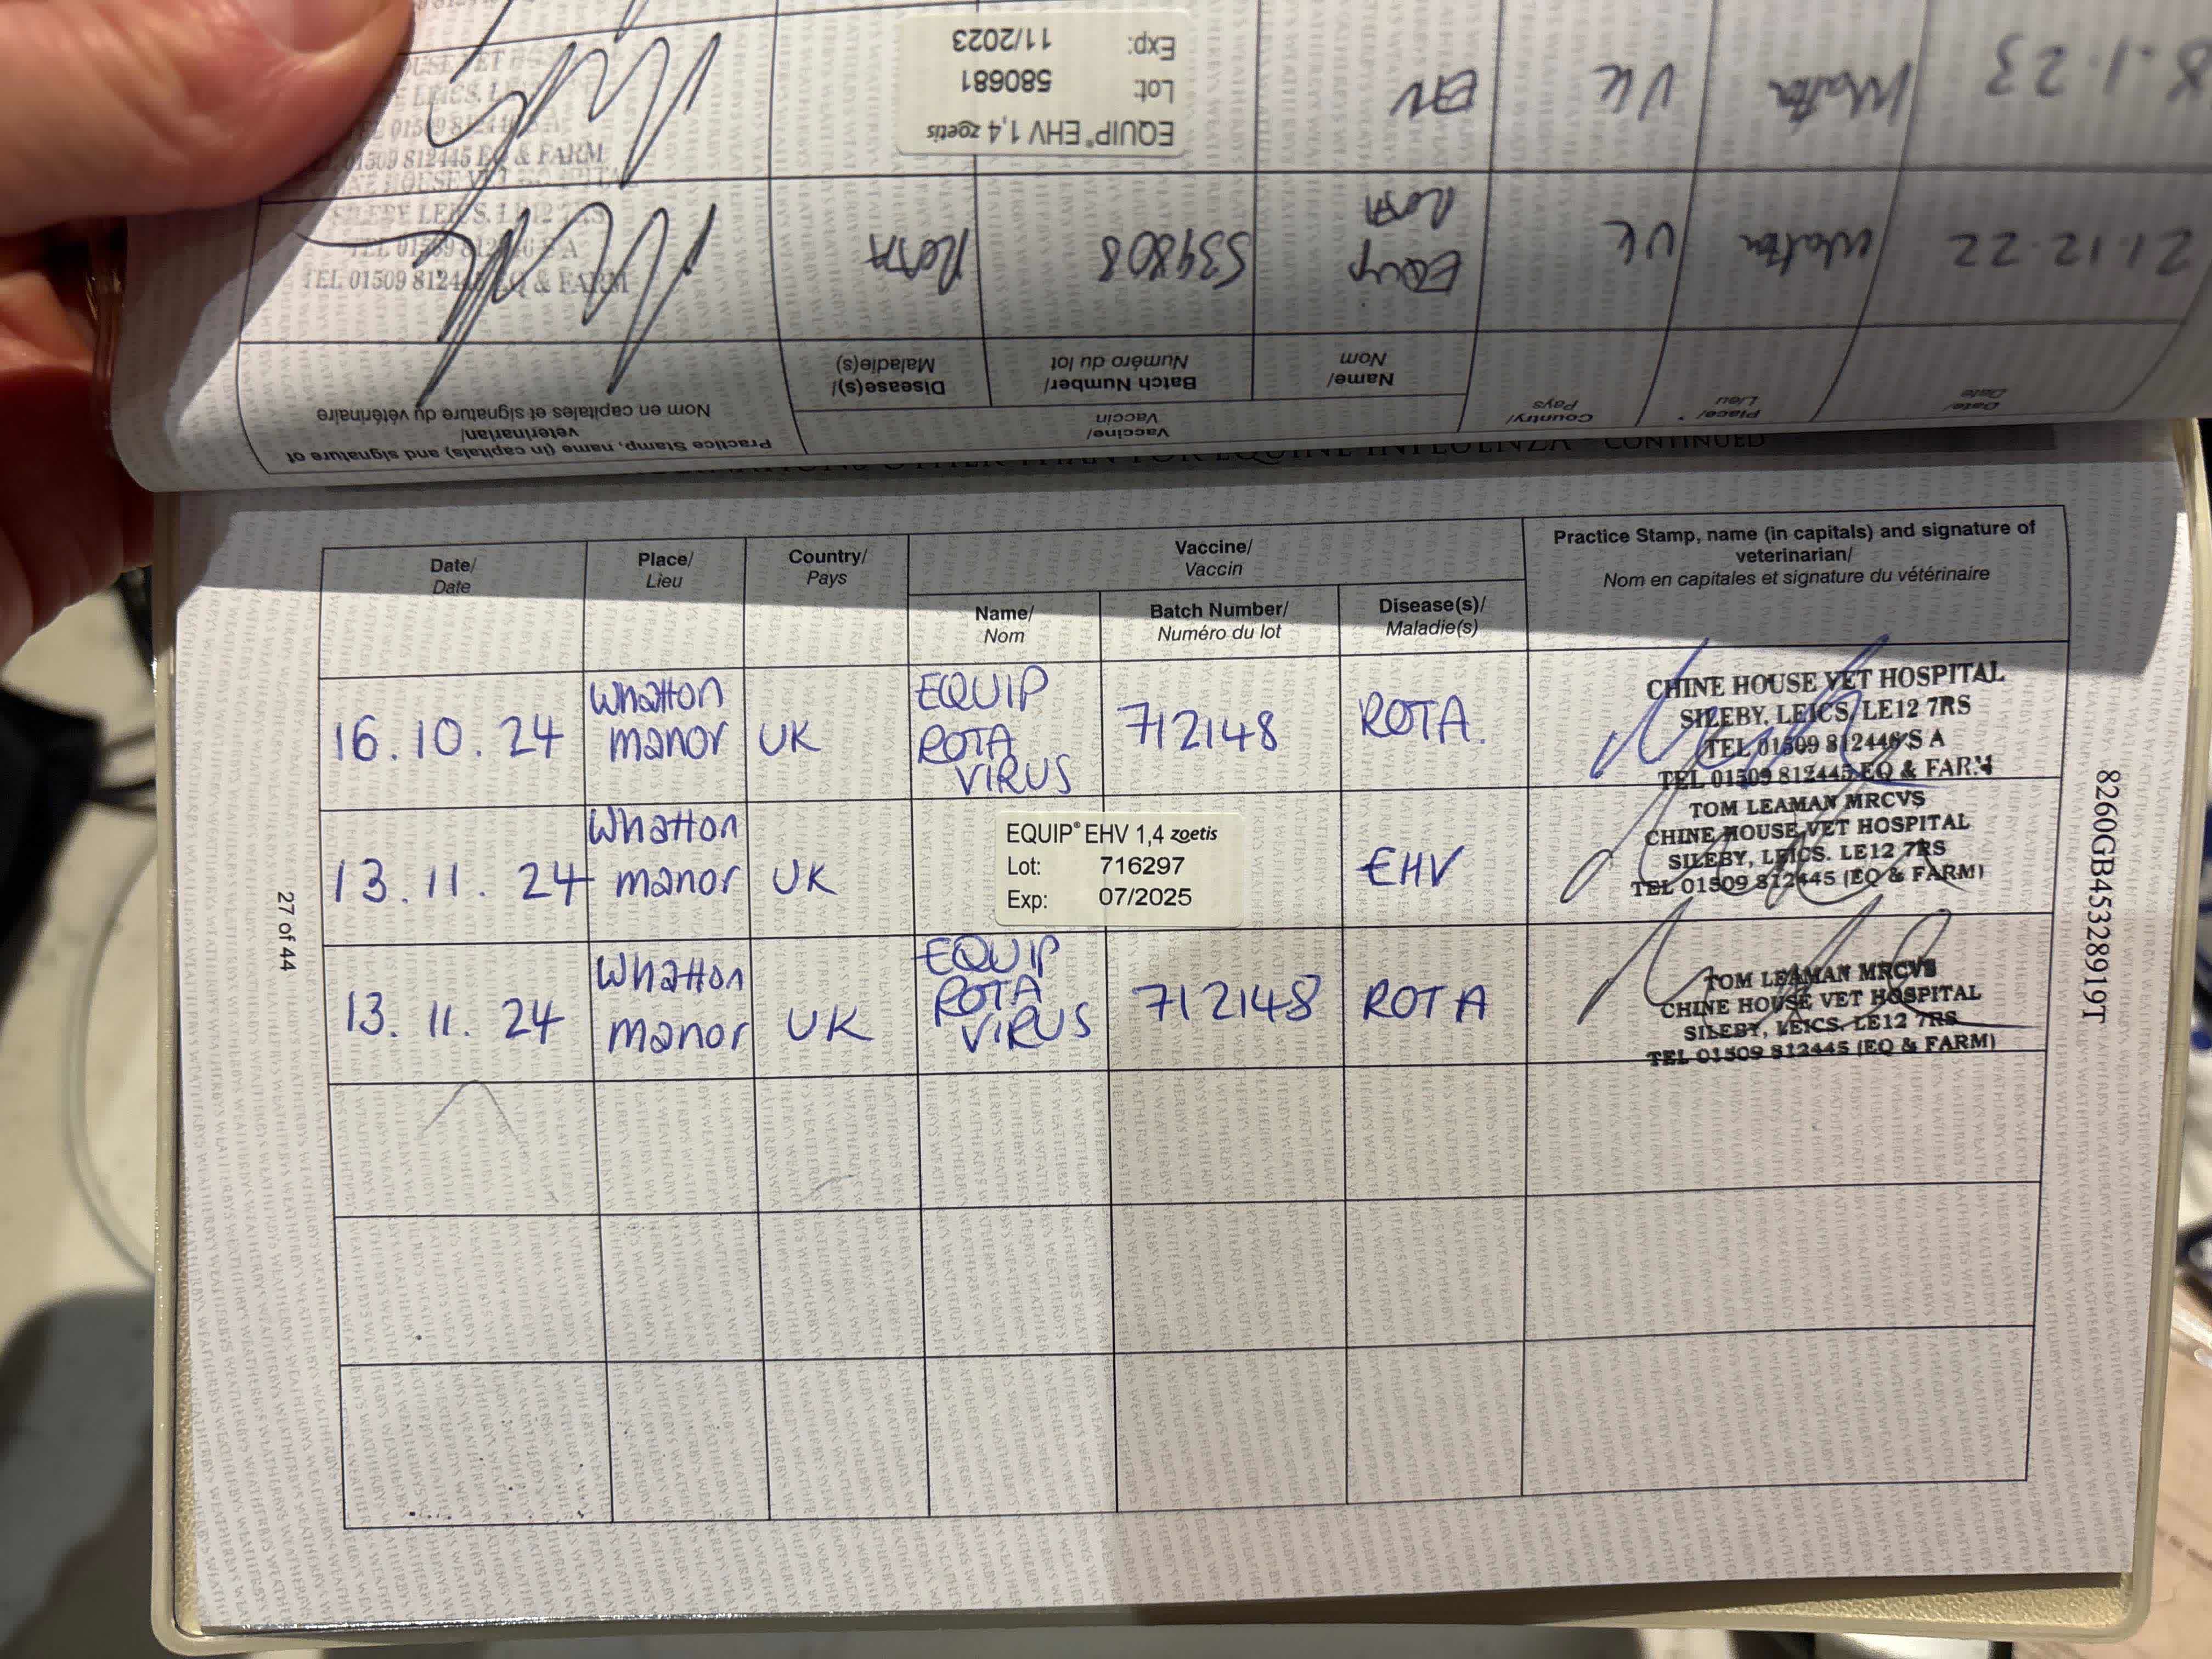 EQUIP® EHV 1,4 zoetis
Lot: 580681
Exp: 11/2023
EHV
UK
TEL 01509 812445 EQ & FARM
21.12.22
UK
EQUIP
ROTA
539808
ROTA
SILEBY LEICS. LE12 7RS
TEL 01509 812446 S A
TEL 01509 812445 EQ & FARM
Date/
Date
Place/
Lieu
Country/
Pays
Vaccine/
Vaccin
Name/
Nom
Batch Number/
Numéro du lot
Disease(s)/
Maladie(s)
Practice Stamp, name (in capitals) and signature of
veterinarian/
Nom en capitales et signature du vétérinaire
OTHER THAN FOR EQUINE INFLUENZA CONTINUED
Date/
Date
Place/
Lieu
Country/
Pays
Vaccine/
Vaccin
Name/
Nom
Batch Number/
Numéro du lot
Disease(s)/
Maladie(s)
Practice Stamp, name (in capitals) and signature of
veterinarian/
Nom en capitales et signature du vétérinaire
16.10.24
Whatton
manor
UK
EQUIP
ROTA
VIRUS
712148
ROTA.
CHINE HOUSE VET HOSPITAL
SILEBY, LEICS, LE12 7RS
TEL 01509 812446 S A
TEL 01509 812445 EQ & FARM
13.11.24
Whatton
manor
UK
EQUIP® EHV 1,4 zoetis
Lot: 716297
Exp: 07/2025
EHV
TOM LEAMAN MRCVS
CHINE HOUSE VET HOSPITAL
SILEBY, LEICS. LE12 7RS
TEL 01509 812445 (EQ & FARM)
13.11.24
Whatton
manor
UK
EQUIP
ROTA
VIRUS
712148
ROTA
TOM LEAMAN MRCVS
CHINE HOUSE VET HOSPITAL
SILEBY, LEICS. LE12 7RS
TEL 01509 812445 (EQ & FARM)
27 of 44
8260GB45328919T